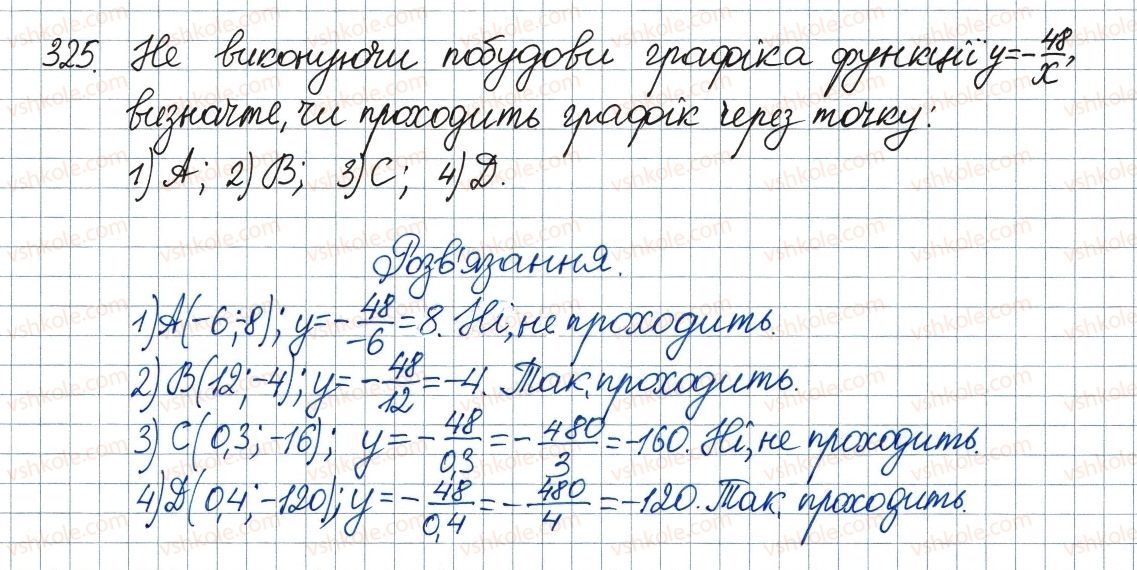 325. Не виконуючи побудови графіка функції y=-48/x,
визначте, чи проходить графік через точку:
1) A; 2) B; 3) C; 4) D.
Розв'язання.
1) A(-6; -8); y = -48/-6 = 8. Ні, не проходить.
2) B(12; -4); y = -48/12 = -4. Так, проходить.
3) C(0,3; -16); y = -48/0,3 = -480/3 = -160. Ні, не проходить.
4) D(0,4; -120); y = -48/0,4 = -480/4 = -120. Так, проходить.